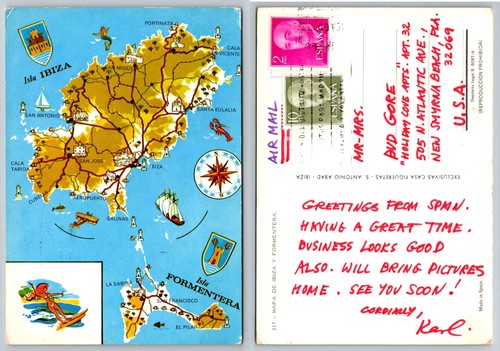 PORTINATX
CALA S. VICENTE
Isla IBIZA
SAN MIGUEL
SANTA EULALIA
SAN ANTONIO
CALA TARIDA
SAN JOSE
IBIZA
CUBELLS
AEROPUERTO
SALINAS
Isla
FORMENTERA
LA SABINA
S. FRANCISCO
EL PILAR
2 PTAS
ESPAÑA
ESPAÑA
AIR MAIL
MR-MRS.
BUD GORE
"HOLIDAY COVE APTS" APT. 32
505 N. ATLANTIC AVE.,
NEW SMYRNA BEACH, FLA.
32069
U.S.A.
(REPRODUCCION PROHIBIDA)
EXCLUSIVAS CASA FIGUERETAS - S. ANTONIO ABAD - IBIZA
217 - MAPA DE IBIZA Y FORMENTERA.
Made in Spain
GREETINGS FROM SPAIN.
HAVING A GREAT TIME.
BUSINESS LOOKS GOOD
ALSO. WILL BRING PICTURES
HOME. SEE YOU SOON!
CORDIALLY,
Karl.